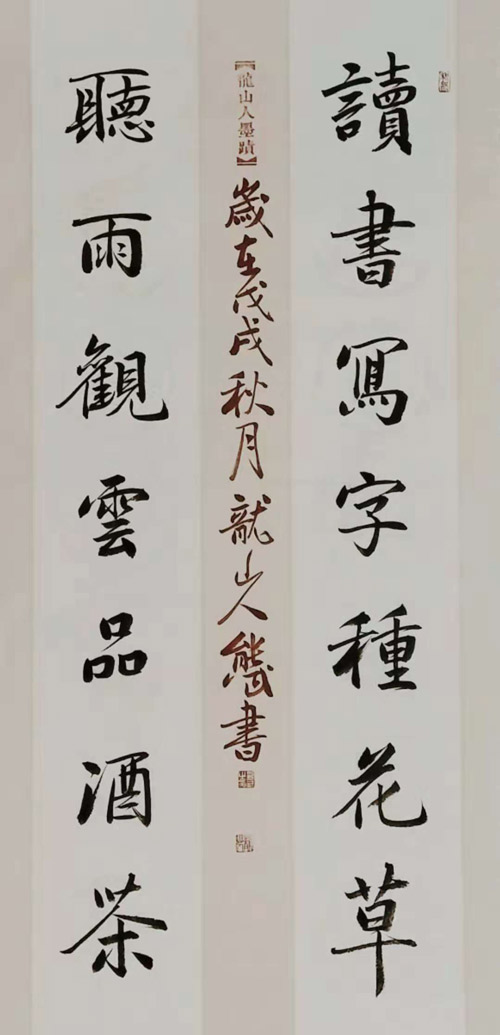 讀書寫字種花草
【龍山人墨蹟】
歲在戊戌秋月龍山人書
聽雨觀雲品酒茶